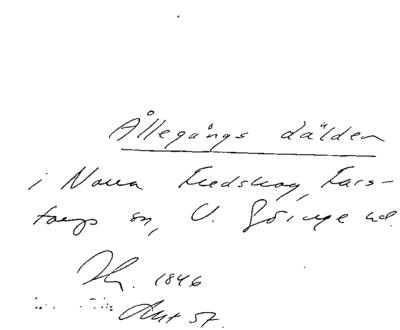 Ållegångs dälden
i Norra Fredskog, Fars-
torps sn, V. Göinge hd.
1846